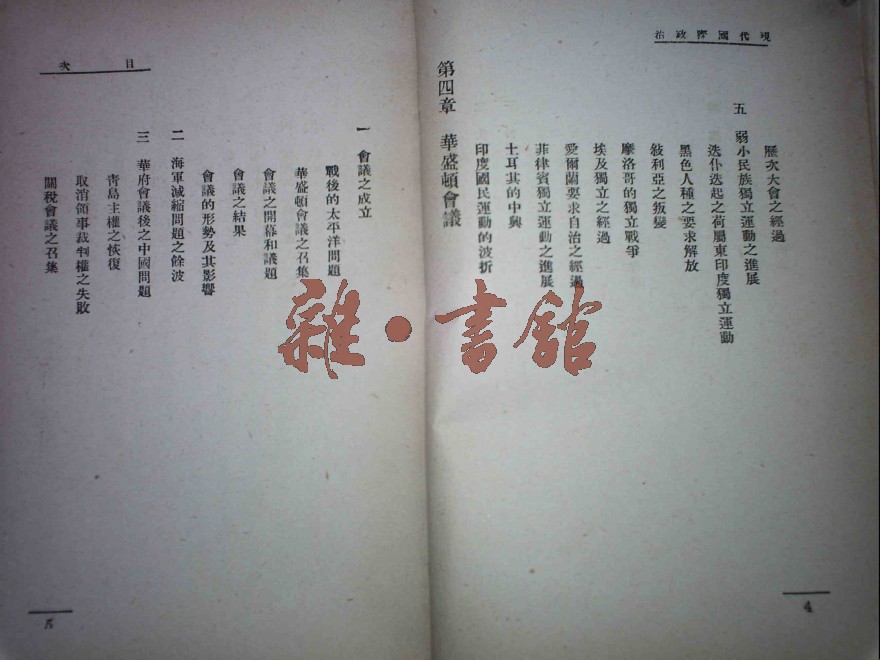 現代國際政治
歷次大會之經過
五 弱小民族獨立運動之進展
迭仆迭起之荷屬東印度獨立運動
黑色人種之要求解放
敍利亞之叛變
摩洛哥的獨立戰爭
埃及獨立之經過
愛爾蘭要求自治之經過
菲律賓獨立運動之進展
土耳其的中興
印度國民運動的波折
4
目次
第四章 華盛頓會議
一 會議之成立
戰後的太平洋問題
華盛頓會議之召集
會議之開幕和議題
會議之結果
會議的形勢及其影響
二 海軍減縮問題之餘波
三 華府會議後之中國問題
靑島主權之恢復
取消領事裁判權之失敗
關稅會議之召集
5
雜·書館